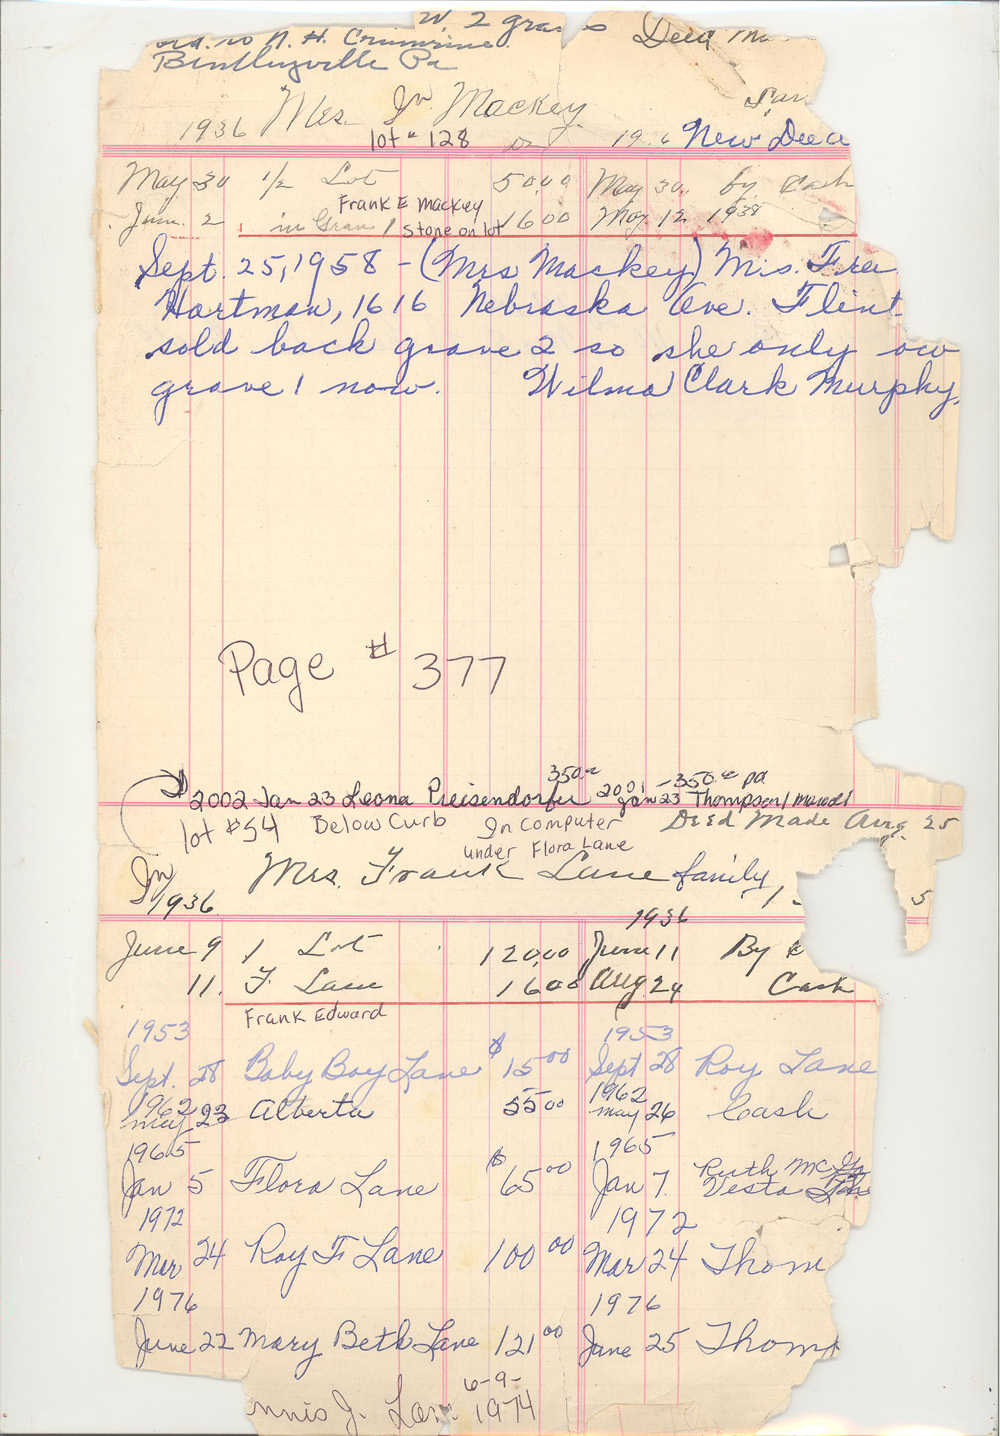 W. 2 graves Deed Ma
N. H. Crumrine
Bentleyville Pa
Mrs. Jn Mackey
1936 lot # 128 19 6 New Deed
May 30 1/2 Lot 50.00 May 30. by Cash
Frank E Mackey
June. 2 in Grav 1 Stone on lot 16 00 May 12 1938
Sept. 25, 1958 - (Mrs Mackey) Mrs. Fre
Hartman, 1616 Nebraska Ave. Flint
sold back grave 2 so she only ow
grave 1 now. Wilma Clark Murphy,
Page # 377
350.00 - 350.00 pd
2002 Jan 23 Leona Preisendorfer 2001 Jan 23 Thompson/
lot #54 Below Curb In Computer Deed Made Aug. 25
under Flora Lane
In Mrs. Frank Lane family,
1936 1936 5
June 9 1 Lot 120.00 June 11 By
11. F. Lane 16 00 Aug 24 Cash
Frank Edward
1953 1953
Sept. 28 Baby Boy Lane $ 15 00 Sept 28 Roy Lane
1962 1962
May 23 Alberta 55 00 May 26 Cash
1965 1965
Jan 5 Flora Lane $ 65 00 Jan 7. Ruth Mc
Vesta
1972 1972
Mar 24 Roy F Lane 100 00 Mar 24 Thom
1976 1976
June 22 Mary Beth Lane 121 00 June 25 Thomp
6-9-
nnis J. Lane 1974